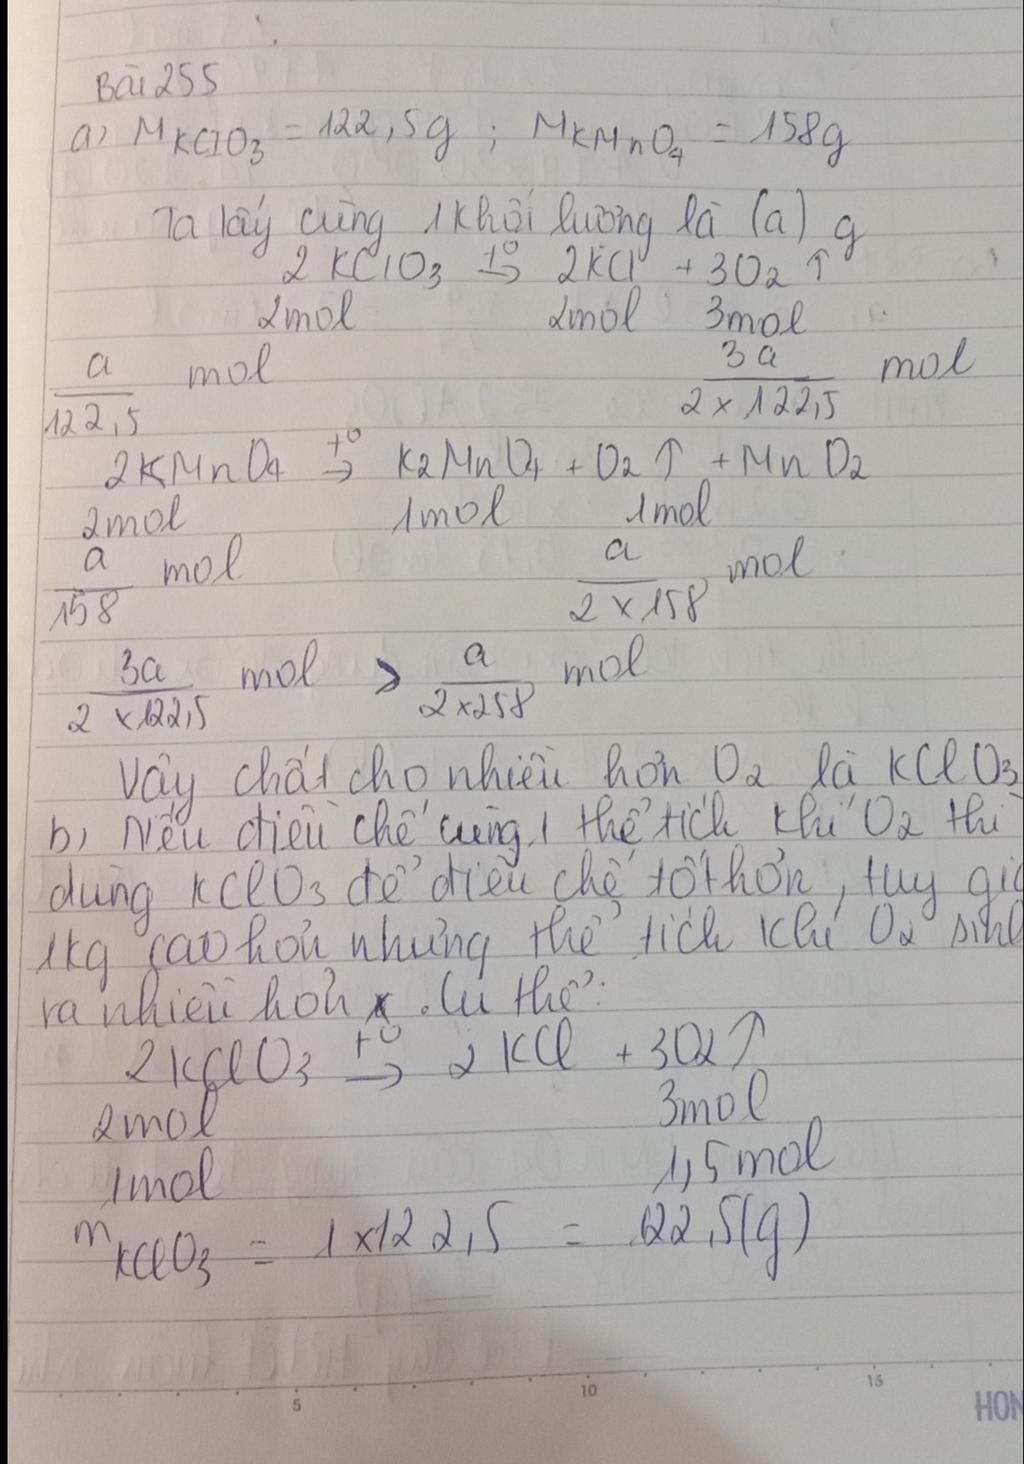 Bài 255
a) MKClO3 = 122,5g ; MKMnO4 = 158g
Ta lấy cùng 1 khối lượng là (a) g
2KClO3 t° → 2KCl + 3O2 ↑
2mol 2mol 3mol
a/122,5 mol 3a/2×122,5 mol
2KMnO4 t° → K2MnO4 + O2 ↑ + MnO2
2mol 1mol 1mol
a/158 mol a/2×158 mol
3a/2×122,5 mol > a/2×258 mol
Vậy chất cho nhiều hơn O2 là KClO3
b) Nếu điều chế cùng 1 thể tích khí O2 thì
dùng KClO3 để điều chế tốt hơn, tuy
1kg cao hơn nhưng thể tích khí O2
ra nhiều hơn. Cụ thể:
2KClO3 t° → 2KCl + 3O2 ↑
2mol 3mol
1mol 1,5mol
mKClO3 = 1×122,5 = 122,5(g)
5 10 15
HON